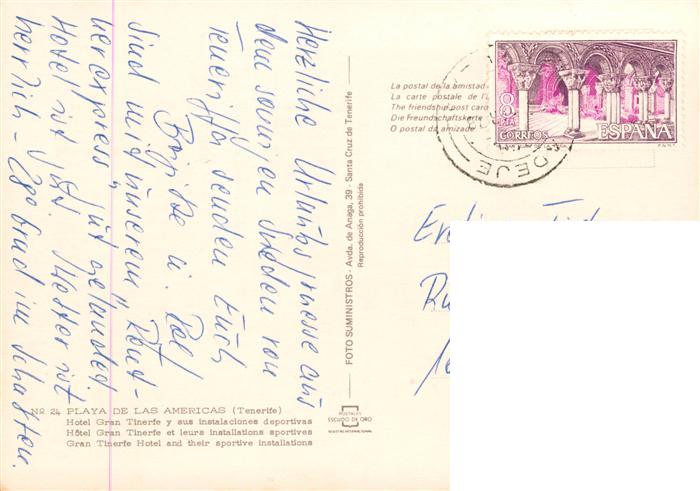 Herzliche Urlaubsgrüsse aus
dem sonnigen Süden von
Teneriffa senden Euch
Brigitte u. 
Sind mit unserem „Rönt-
 gut gelandet
Hotel ist gut. Wetter ist
herrlich - 28 Grad im Schatten.
FOTO SUMINISTROS - Avda. de Anaga, 39 - Santa Cruz de Tenerife
Reproducción prohibida
La postal de la amistad
La carte postale de l'a
The friendship post card
Die Freundschaftskarte
O postal da amizade
8
PTA
CORREOS
ESPAÑA
F.N.M.T.
DEJE
Nº 24 PLAYA DE LAS AMERICAS (Tenerife)
Hotel Gran Tinerfe y sus instalaciones deportivas
Hôtel Gran Tinerfe et leurs installations sportives
Gran Tinerfe Hotel and their sportive installations
POSTALES
ESCUDO DE ORO
REGISTRO INTERNACIONAL